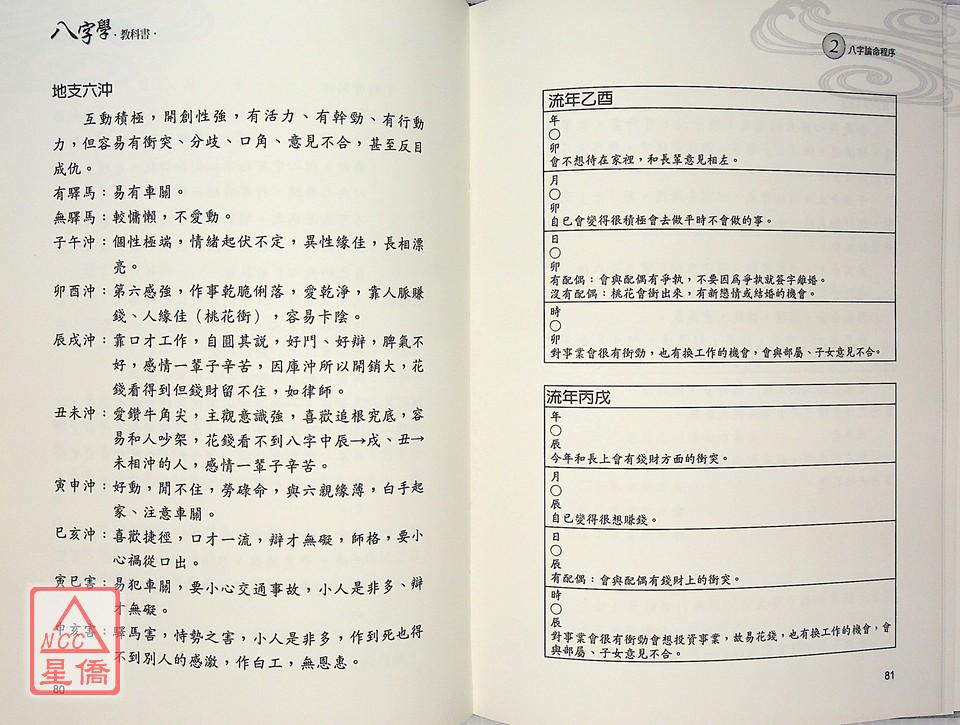 八字學·教科書·
地支六沖
互動積極，開創性強，有活力、有幹勁、有行動
力，但容易有衝突、分歧、口角、意見不合，甚至反目
成仇。
有驛馬：易有車關。
無驛馬：較慵懶，不愛動。
子午沖：個性極端，情緒起伏不定，異性緣佳，長相漂
亮。
卯酉沖：第六感強，作事乾脆俐落，愛乾淨，靠人脈賺
錢、人緣佳（桃花衝），容易卡陰。
辰戌沖：靠口才工作，自圓其說，好鬥、好辯，脾氣不
好，感情一輩子辛苦，因庫沖所以開銷大，花
錢看得到但錢財留不住，如律師。
丑未沖：愛鑽牛角尖，主觀意識強，喜歡追根究底，容
易和人吵架，花錢看不到八字中辰→戌、丑→
未相沖的人，感情一輩子辛苦。
寅申沖：好動，閒不住，勞碌命，與六親緣薄，白手起
家、注意車關。
巳亥沖：喜歡捷徑，口才一流，辯才無礙，師格，要小
心禍從口出。
寅巳害：易犯車關，要小心交通事故，小人是非多、辯
才無礙。
申亥害：驛馬害，恃勢之害，小人是非多，作到死也得
不到別人的感激，作白工，無恩惠。
NCC
星僑
80
2 八字論命程序
流年乙酉
年
○
卯
會不想待在家裡，和長輩意見相左。
月
○
卯
自已會變得很積極會去做平時不會做的事。
日
○
卯
有配偶：會與配偶有爭執，不要因為爭執就簽字離婚。
沒有配偶：桃花會衝出來，有新戀情或結婚的機會。
時
○
卯
對事業會很有衝勁，也有換工作的機會，會與部屬、子女意見不合。
流年丙戌
年
○
辰
今年和長上會有錢財方面的衝突。
月
○
辰
自已變得很想賺錢。
日
○
辰
有配偶：會與配偶有錢財上的衝突。
時
○
辰
對事業會很有衝勁會想投資事業，故易花錢，也有換工作的機會，會
與部屬、子女意見不合。
81